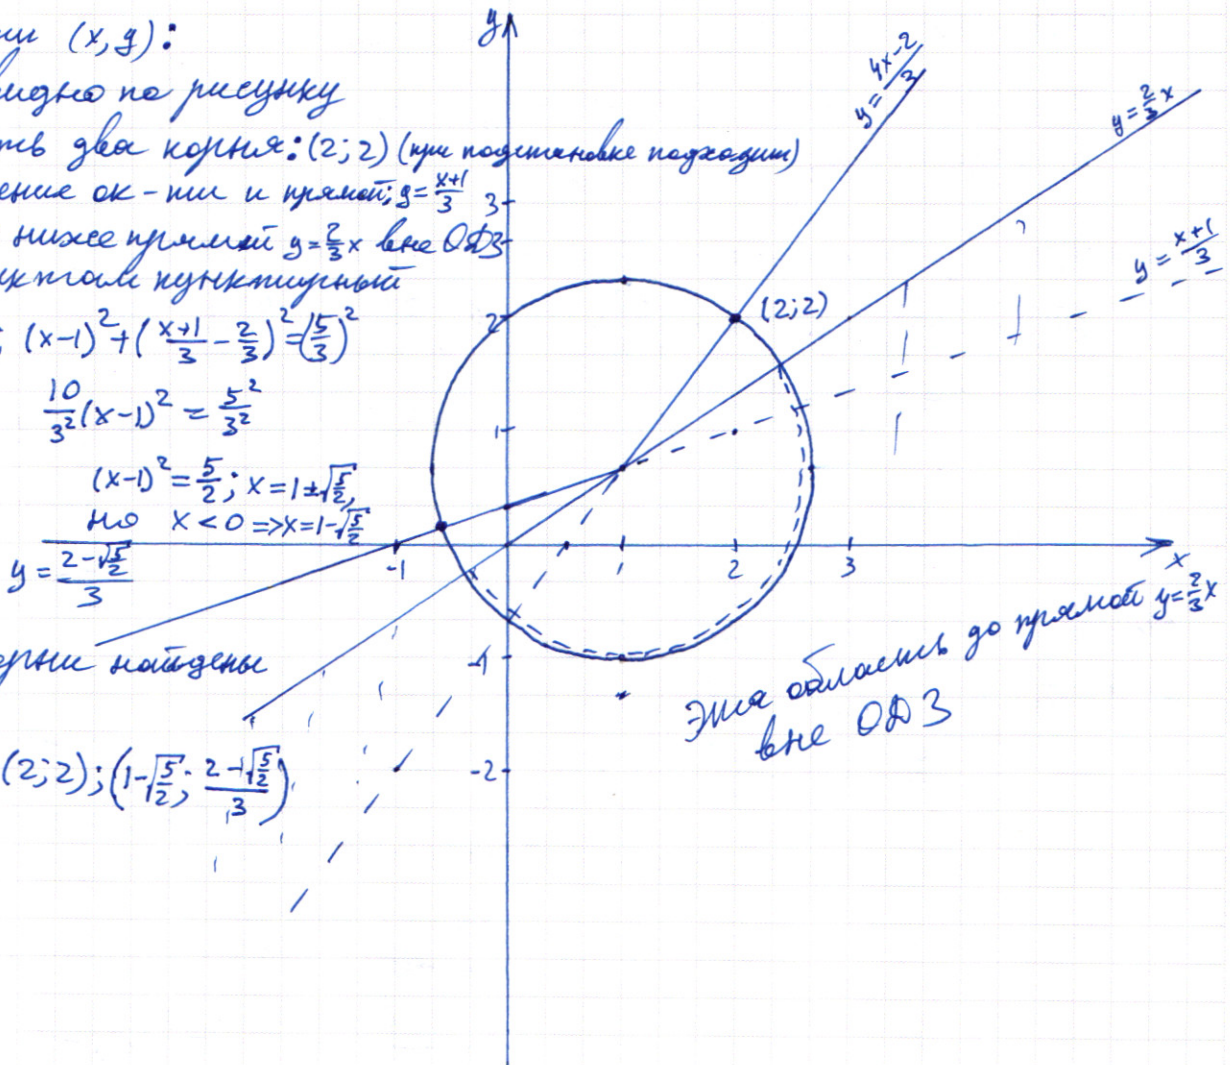 ии (x, y):
видно по рисунку
ть два корня: (2; 2) (при подстановке подходит)
ение ок-ти и прямой: y = \frac{x+1}{3}
ниже прямой y = \frac{2}{3}x вне ОДЗ
пунктирный
; (x-1)^2 + (\frac{x+1}{3} - \frac{2}{3})^2 = (\frac{5}{3})^2
\frac{10}{3^2}(x-1)^2 = \frac{5^2}{3^2}
(x-1)^2 = \frac{5}{2}; x = 1 ± \sqrt{\frac{5}{2}},
но x < 0 => x = 1 - \sqrt{\frac{5}{2}}
y = \frac{2 - \sqrt{\frac{5}{2}}}{3}
рни найдены
(2; 2); (1 - \sqrt{\frac{5}{2}}; \frac{2 - \sqrt{\frac{5}{2}}}{3})
y
y = \frac{4x-2}{3}
y = \frac{2}{3}x
y = \frac{x+1}{3}
3
2
(2; 2)
1
-1
1
2
3
x
-1
-2
Эта область до прямой y = \frac{2}{3}x
вне ОДЗ